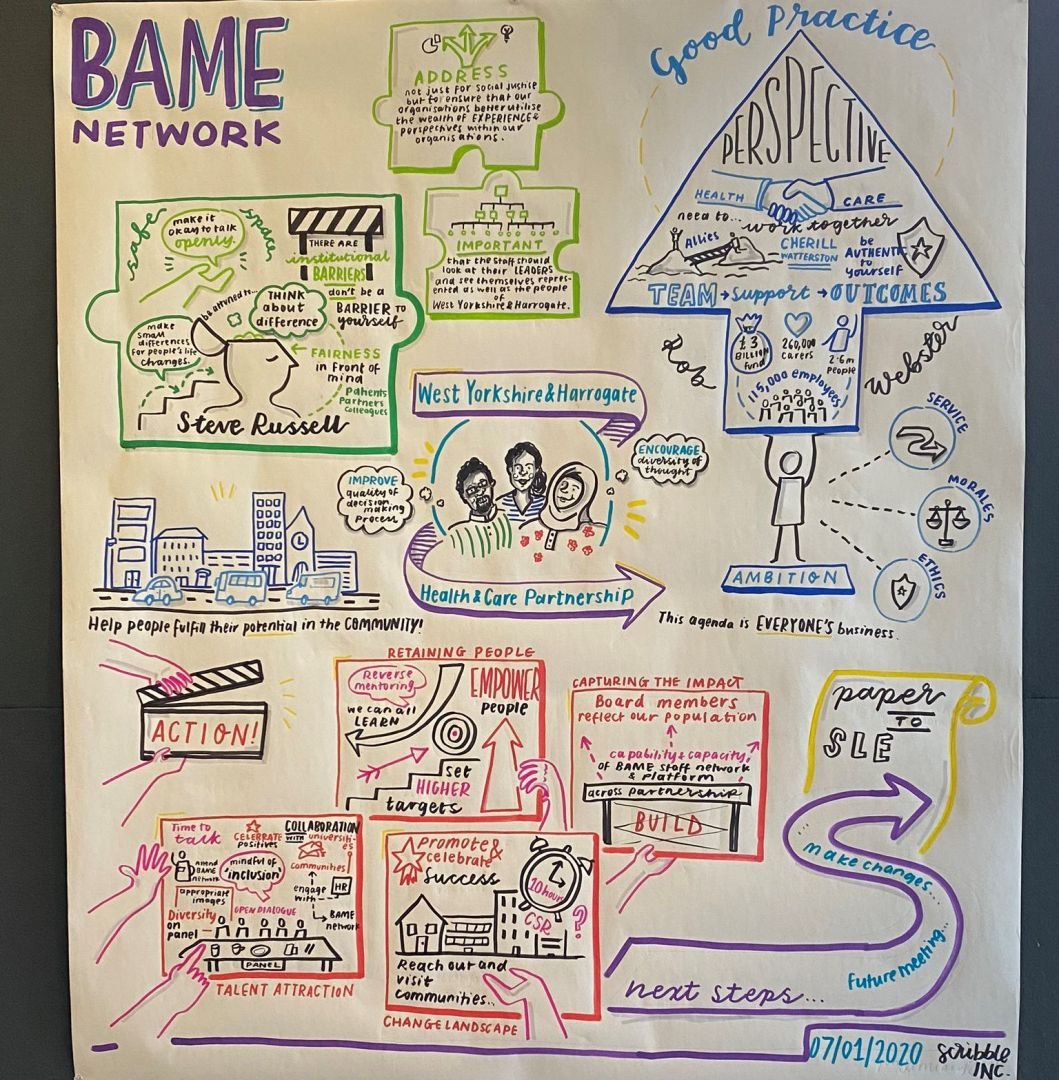 BAME
NETWORK
ADDRESS
not just for social justice
but to ensure that our
organisations better utilise
the wealth of EXPERIENCE &
perspectives within our
organisations.
IMPORTANT
that the staff should
look at their LEADERS
and see themselves repres-
ented as well as the people
of
West Yorkshire & Harrogate.
safe
space
make it
okay to talk
openly.
THERE ARE
institutional
BARRIERS
don't be a
BARRIER TO
yourself
be attuned to...
THINK
about
difference
make
small
differences
for people's life
changes.
FAIRNESS
in front of
mind
Patients
Partners
Colleagues
Steve Russell
Good Practice
PERSPECTIVE
HEALTH
CARE
need to...
work together
Allies
CHERILL
WATTERSTON
be
AUTHENTIC
to
yourself
TEAM → support → OUTCOMES
£3
BILLION
fund
260,000
carers
2.6m
people
115,000 employees
Rob
Webster
SERVICE
MORALES
ETHICS
AMBITION
This agenda is EVERYONE'S business.
West Yorkshire & Harrogate
IMPROVE
quality of
decision
making
process
ENCOURAGE
diversity of
thought
Health & Care Partnership
Help people fulfill their potential in the COMMUNITY!
ACTION!
RETAINING PEOPLE
Reverse
mentoring
we can all
LEARN
EMPOWER
people
set
HIGHER
targets
CAPTURING THE IMPACT
Board members
reflect our population
capability & capacity
OF BAME staff network
& platform
across partnership
BUILD
Time to
talk
CELEBRATE
positives
COLLABORATION
WITH universiti-
es
communities
attend
BAME
network
mindful of
inclusion
appropriate
images
engage
with
HR
BAME
network
Diversity
on
panel
OPEN DIALOGUE
PANEL
TALENT ATTRACTION
promote &
celebrate
success
10 hours
CSR
?
Reach out and
visit
communities..
CHANGE LANDSCAPE
paper
TO
SLE
make changes...
future meeting...
next steps...
07/01/2020
scribble
INC.